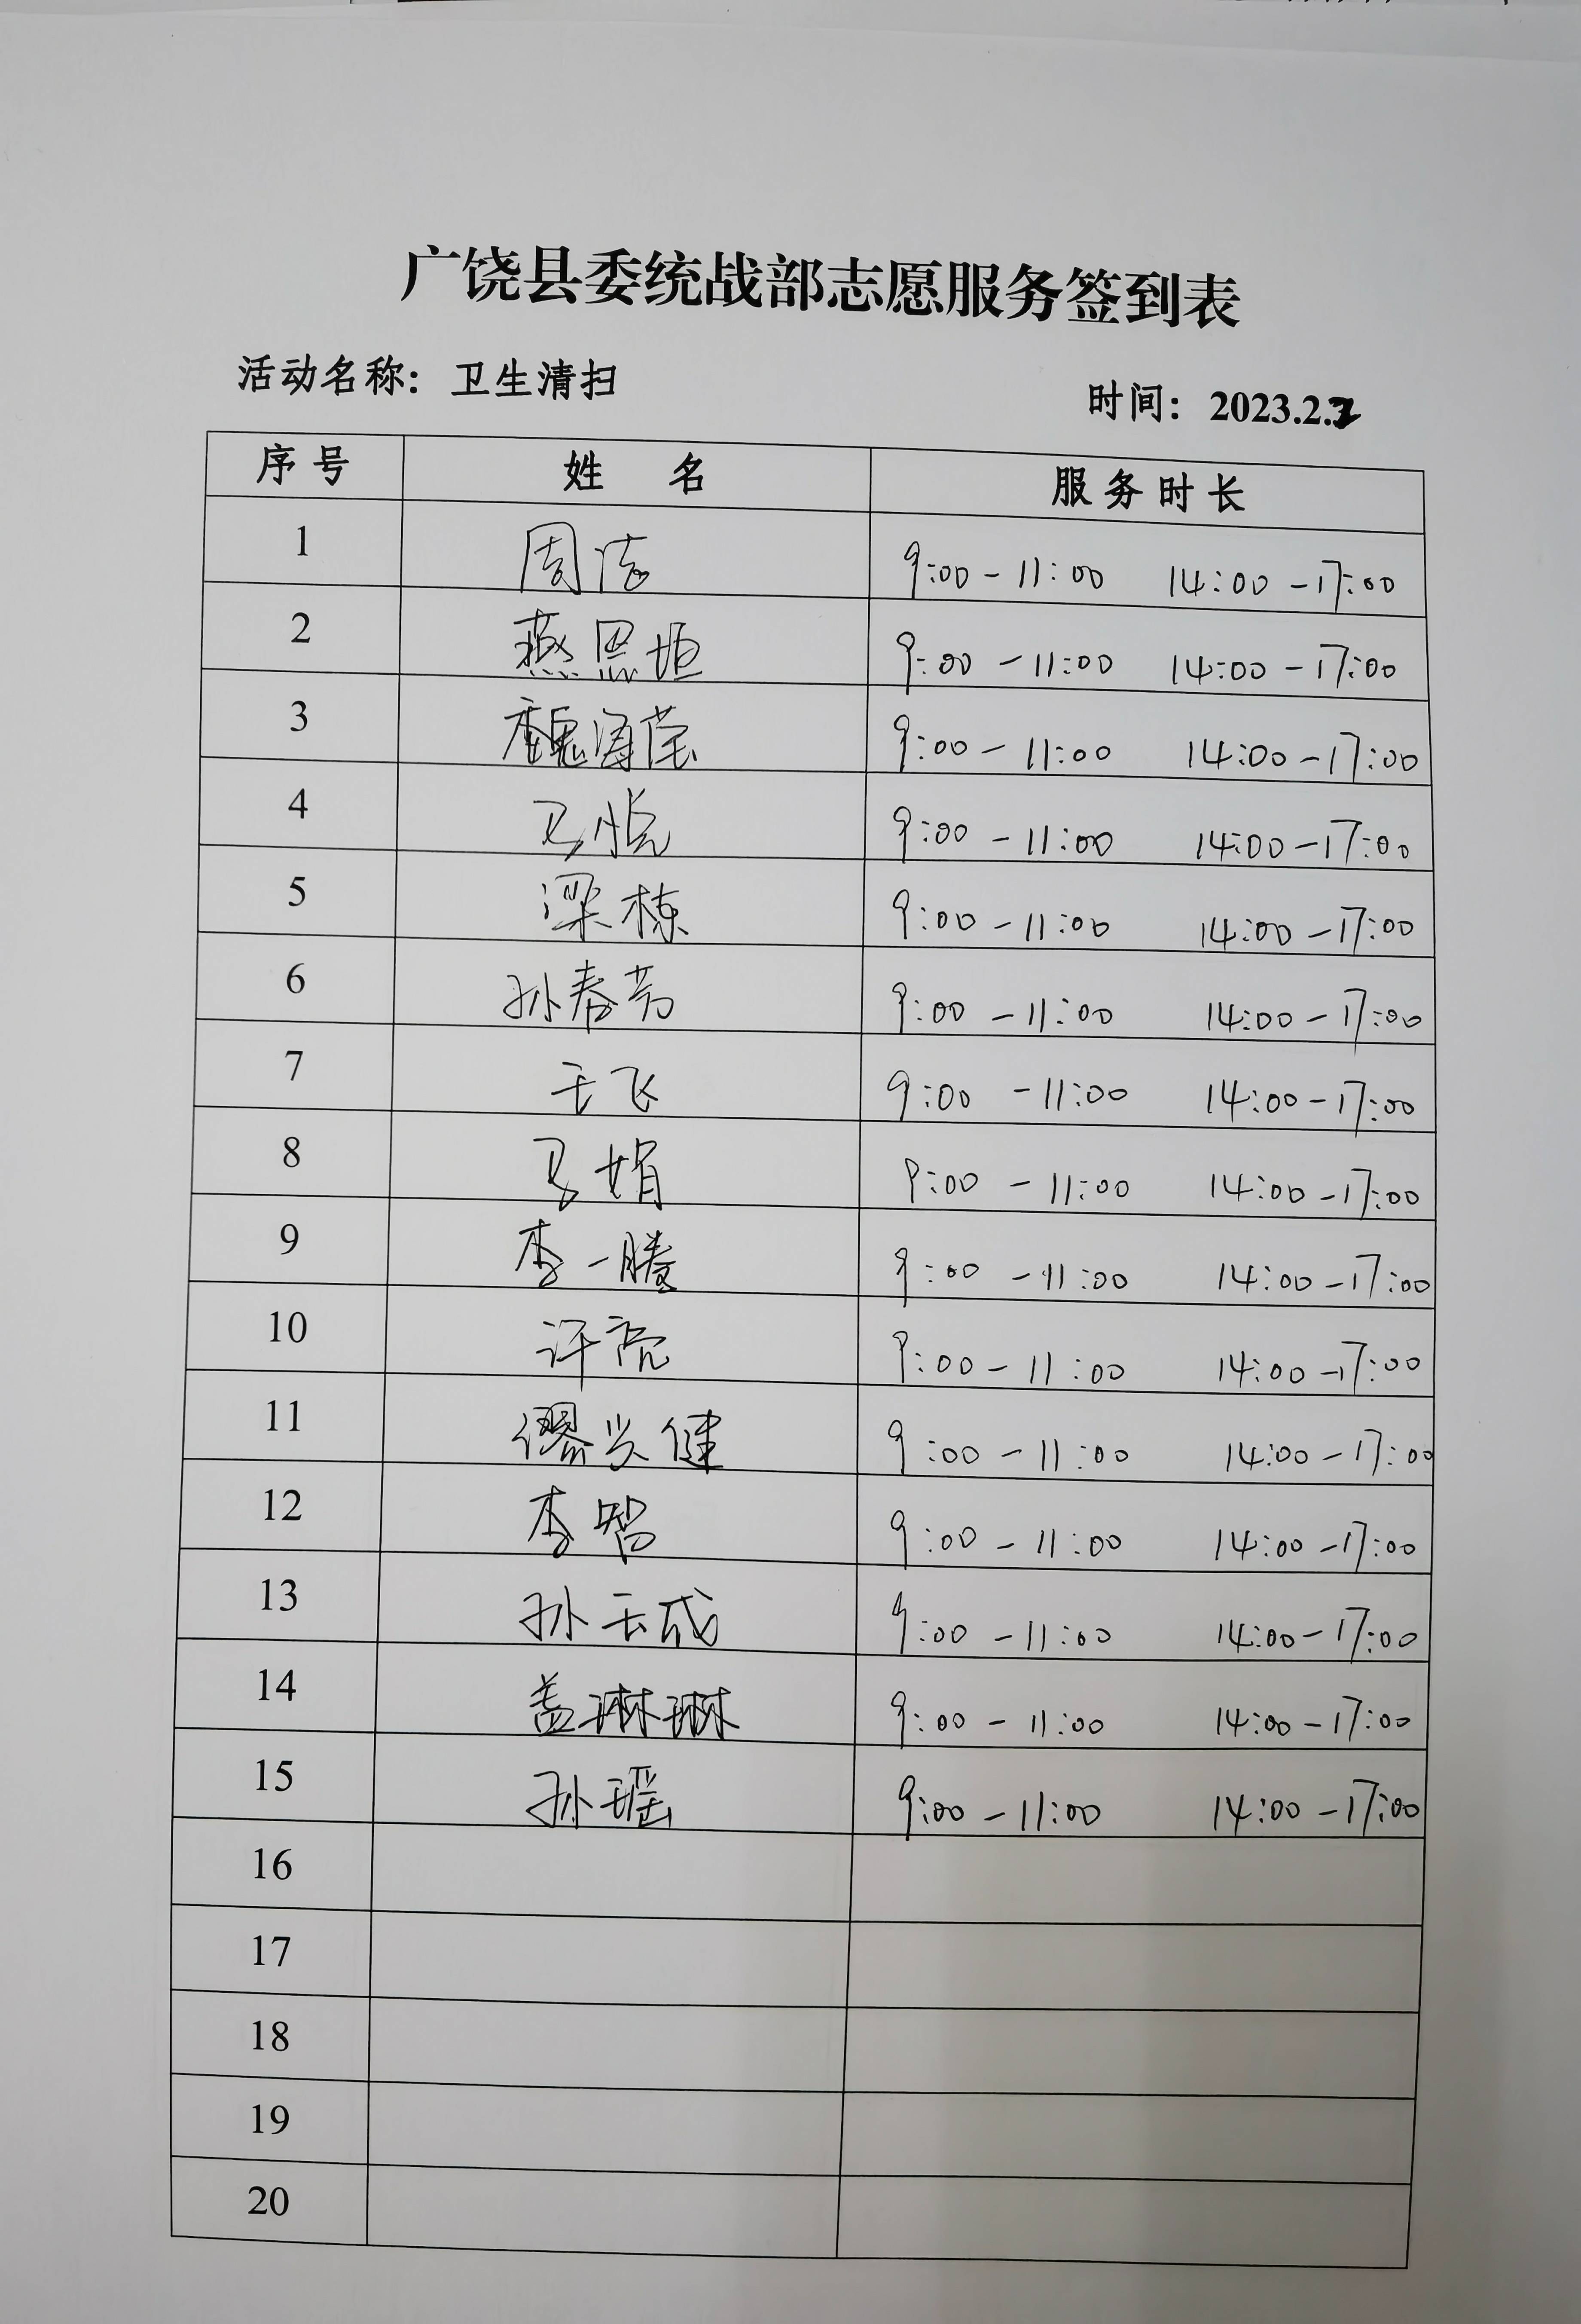 广饶县委统战部志愿服务签到表
活动名称：卫生清扫 时间：2023.2.
序号 姓 名 服务时长
1 周洁 9:00-11:00 14:00-17:00
2 燕恩垣 9:00-11:00 14:00-17:00
3 魏海莹 9:00-11:00 14:00-17:00
4 马悦 9:00-11:00 14:00-17:00
5 梁栋 9:00-11:00 14:00-17:00
6 孙春芳 9:00-11:00 14:00-17:00
7 王飞 9:00-11:00 14:00-17:00
8 马娟 9:00-11:00 14:00-17:00
9 李一腾 9:00-11:00 14:00-17:00
10 许亮 9:00-11:00 14:00-17:00
11 缪兴健 9:00-11:00 14:00-17:00
12 李智 9:00-11:00 14:00-17:00
13 孙玉成 9:00-11:00 14:00-17:00
14 盖琳琳 9:00-11:00 14:00-17:00
15 孙瑶 9:00-11:00 14:00-17:00
16
17
18
19
20